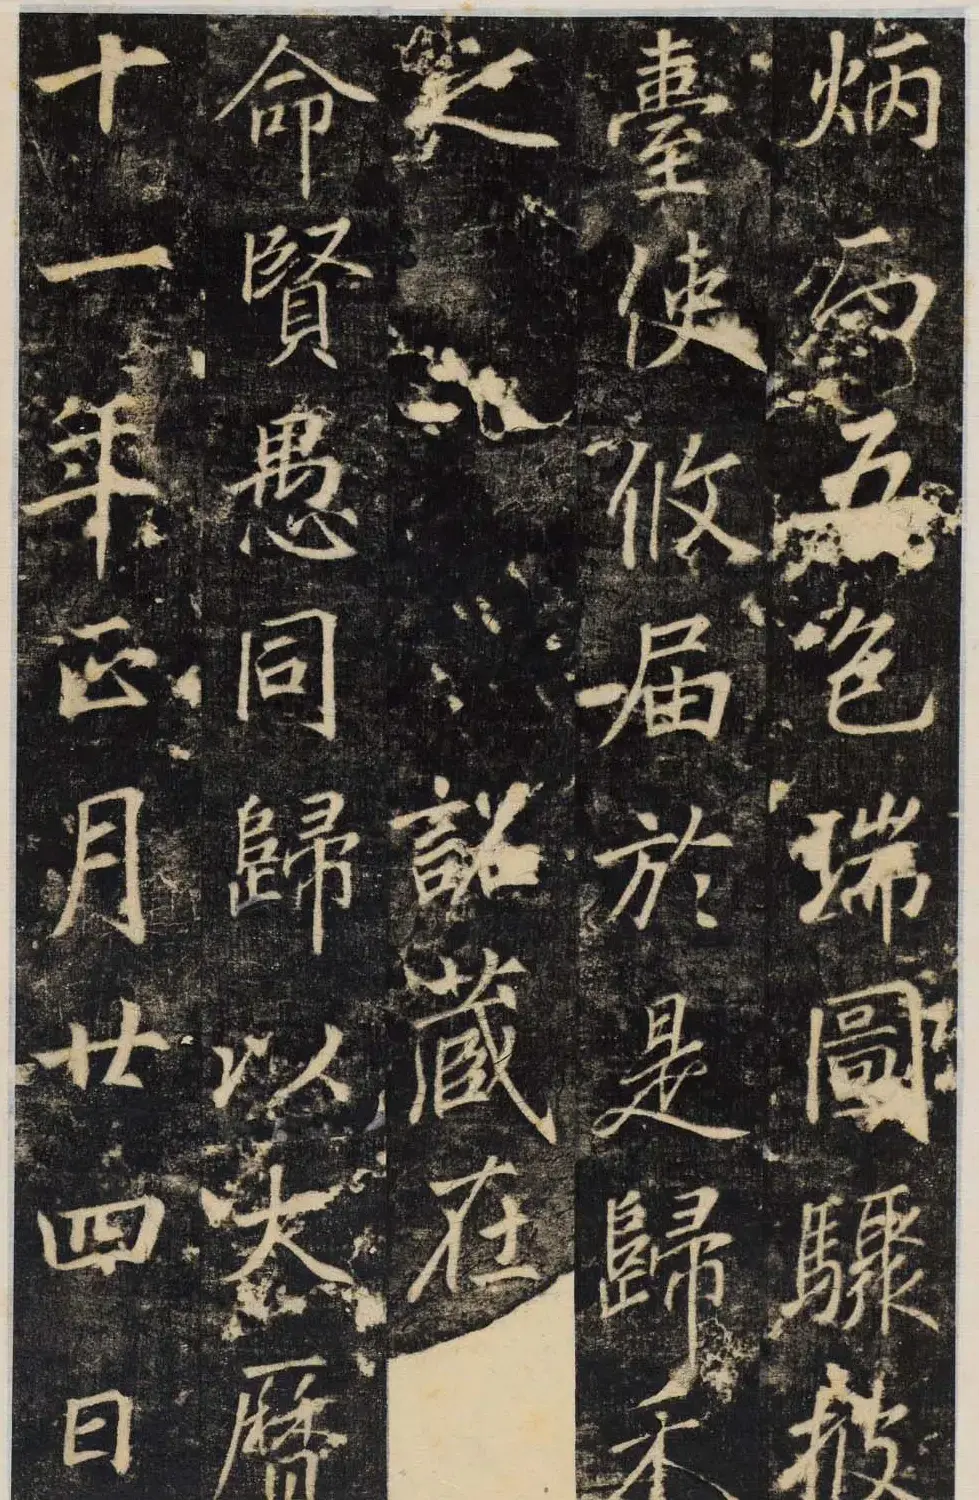 炳丙五色瑞圖驟披
臺使攸届於是歸禾
之詔藏在
命賢愚同歸以大曆
十一年正月廿四日